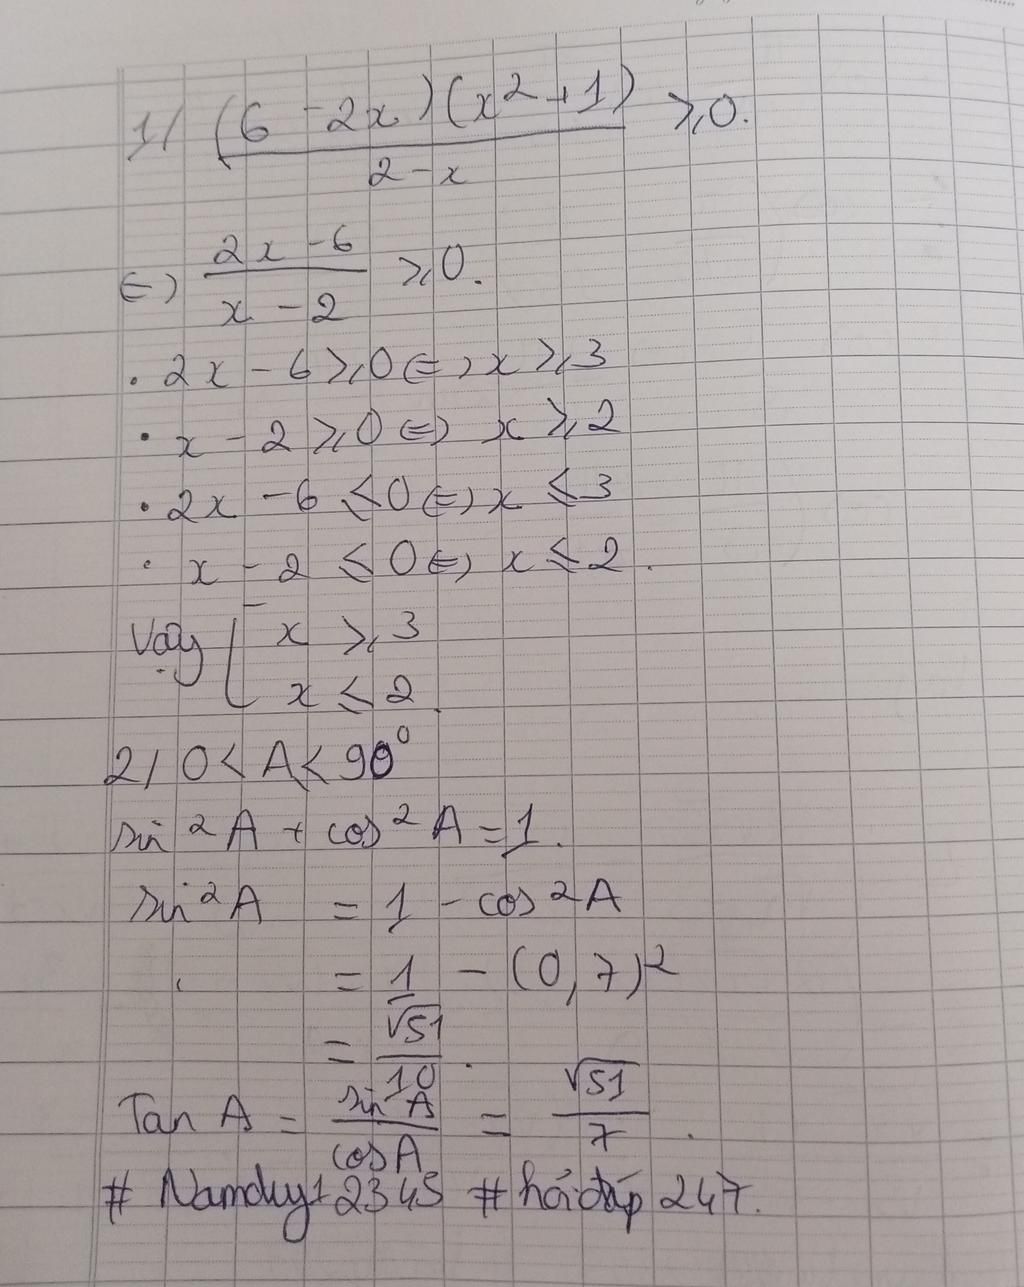 1/ (6 - 2x)(x² + 1) / 2 - x ⩾ 0.
⇔ 2x - 6 / x - 2 ⩾ 0.
• 2x - 6 ⩾ 0 ⇔ x ⩾ 3
• x - 2 ⩾ 0 ⇔ x ⩾ 2
• 2x - 6 ⩽ 0 ⇔ x ⩽ 3
• x - 2 ⩽ 0 ⇔ x ⩽ 2.
Vậy [ x ⩾ 3
x ⩽ 2.
2/ 0 < A < 90⁰
sin ²A + cos ²A = 1.
sin ²A = 1 - cos ²A
= 1 - (0,7)²
= √51 / 10.
Tan A = sin A / cos A = √51 / 7.
# Namduy12345 # hỏiđáp 247.